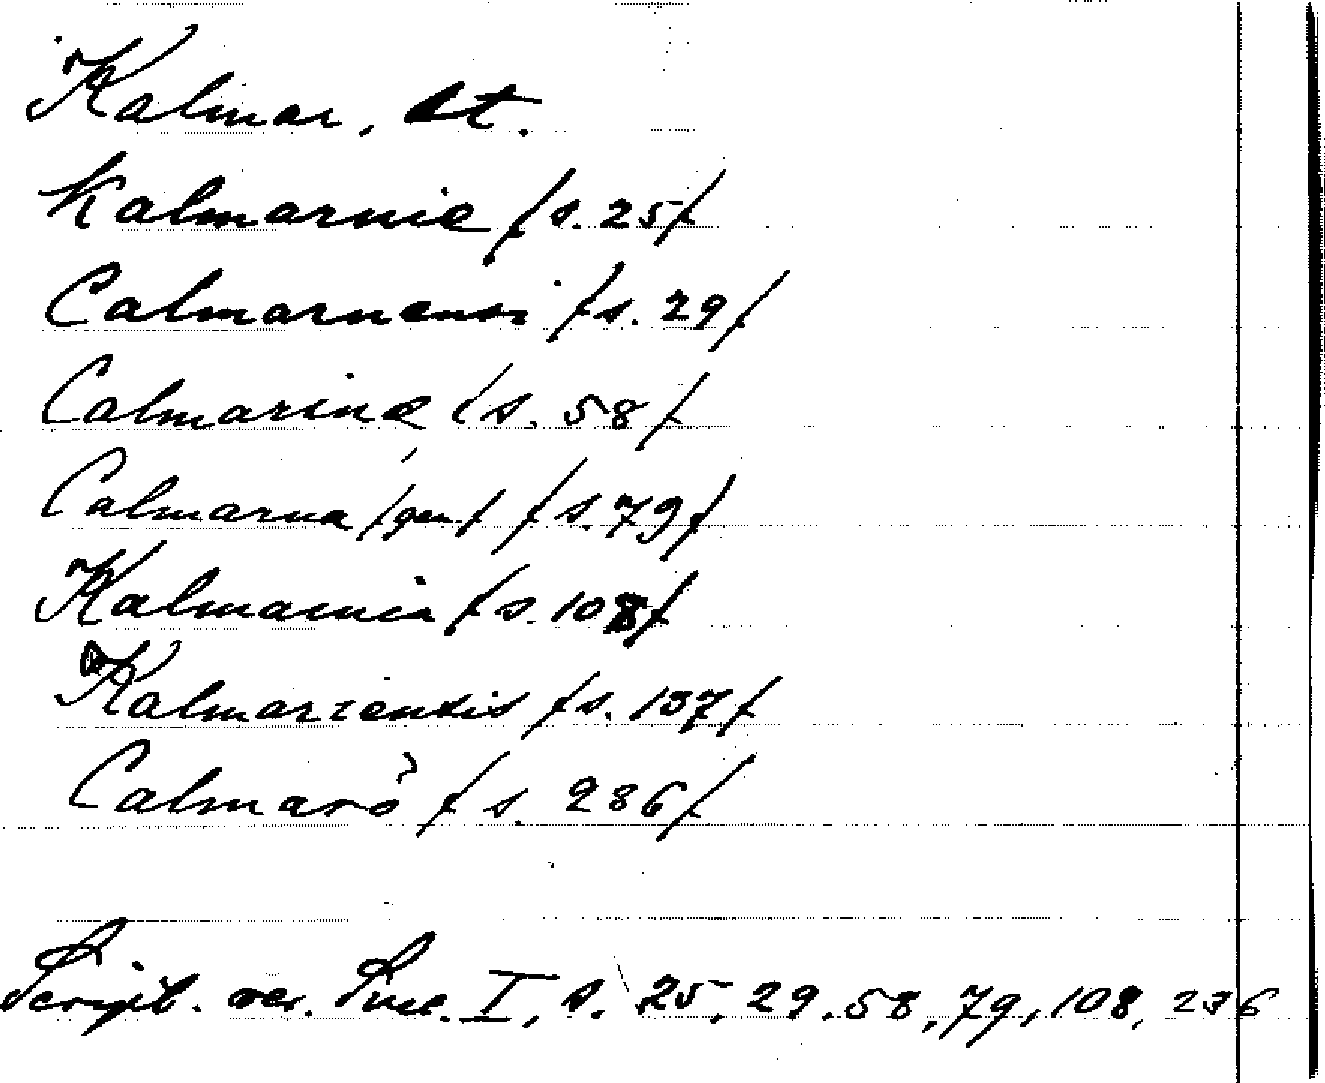 Kalmar, st.
Kalmarnie /s. 25/
Calmarnensi /s. 29/
Calmarine /s. 58/
Calmarna /gen./ /s. 79/
Kalmarnia /s. 108/
Kalmariensis /s. 137/
Calmarö /s. 236/
Script. rer. Suec. I, s. 25, 29, 58, 79, 108, 236